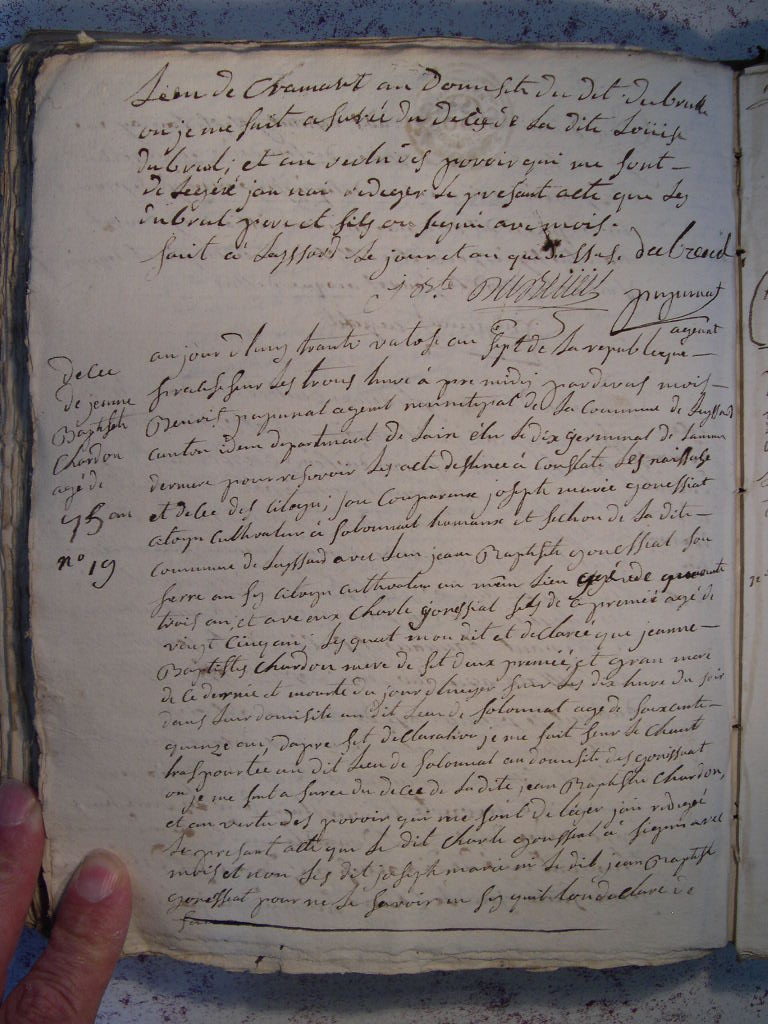 Lieu de Cramant au Domisite du dit dubreul
ou je me suit asurée du decede de La dite Louise
dubreul; et au vertu des povoir qui me sont
de legéré jan irai rediger Le presant acte que Les
dubreul pere et fils on signé ave mois.
fait à Leyssard Le jour et an que dessus. dubreuil
pupunat
ageant
deces
de jeanne
Baptiste
Chardon
agé de
75 ans
n° 19
aujourd'huy trante vatose an sept de La republique
fransaise sur Les trois hure à pre midy pardevas mois
Benoit pupunat agent municipal de La Commune de Leyssard
canton idem departmant de Lain élu Le dix Germinal de Lannee
derniere pour resevoir Les acte destinée à Constaté Les naissase
et decée des citoyn; son Compareuse joseph marie gonessiat
citoyn Cultivateur à Solonnat homaux et section de La dite
Commune de Leyssard avec Lun jean Baptiste gonessiat son
frere au sy citoyn Cultivateur au mem Lieu agé de quarante
trois an, et ave eux Charle gonessiat fils de La premiée agé de
vingt Cinq an; Les quel mon dit et declarée que jeanne
Baptiste Chardon mere de set deux premiée, et gran mere
de Ce dernié et mourte du jour d'hier sur Les dix hure du soir
dans Leur domisite au dit Lieu de Solonnat agé de Soixante
quinze an; dapre set déllaration je me suit sur Le Chant
trasportee au dit Lieu de Solonnat au domisite des gonissiat
ou je me suit asuree du decee de La dite jean Baptiste Chardon,
et au vertu des povoir qui me sont de léger jair redigé
Le presant acte que Le dit Charle gonessiat à signé avec
mois et non Les dit joseph marie ni Le dit jean Baptiste
gonessiat pour ne Le savoir en sy quil Lon declaré de